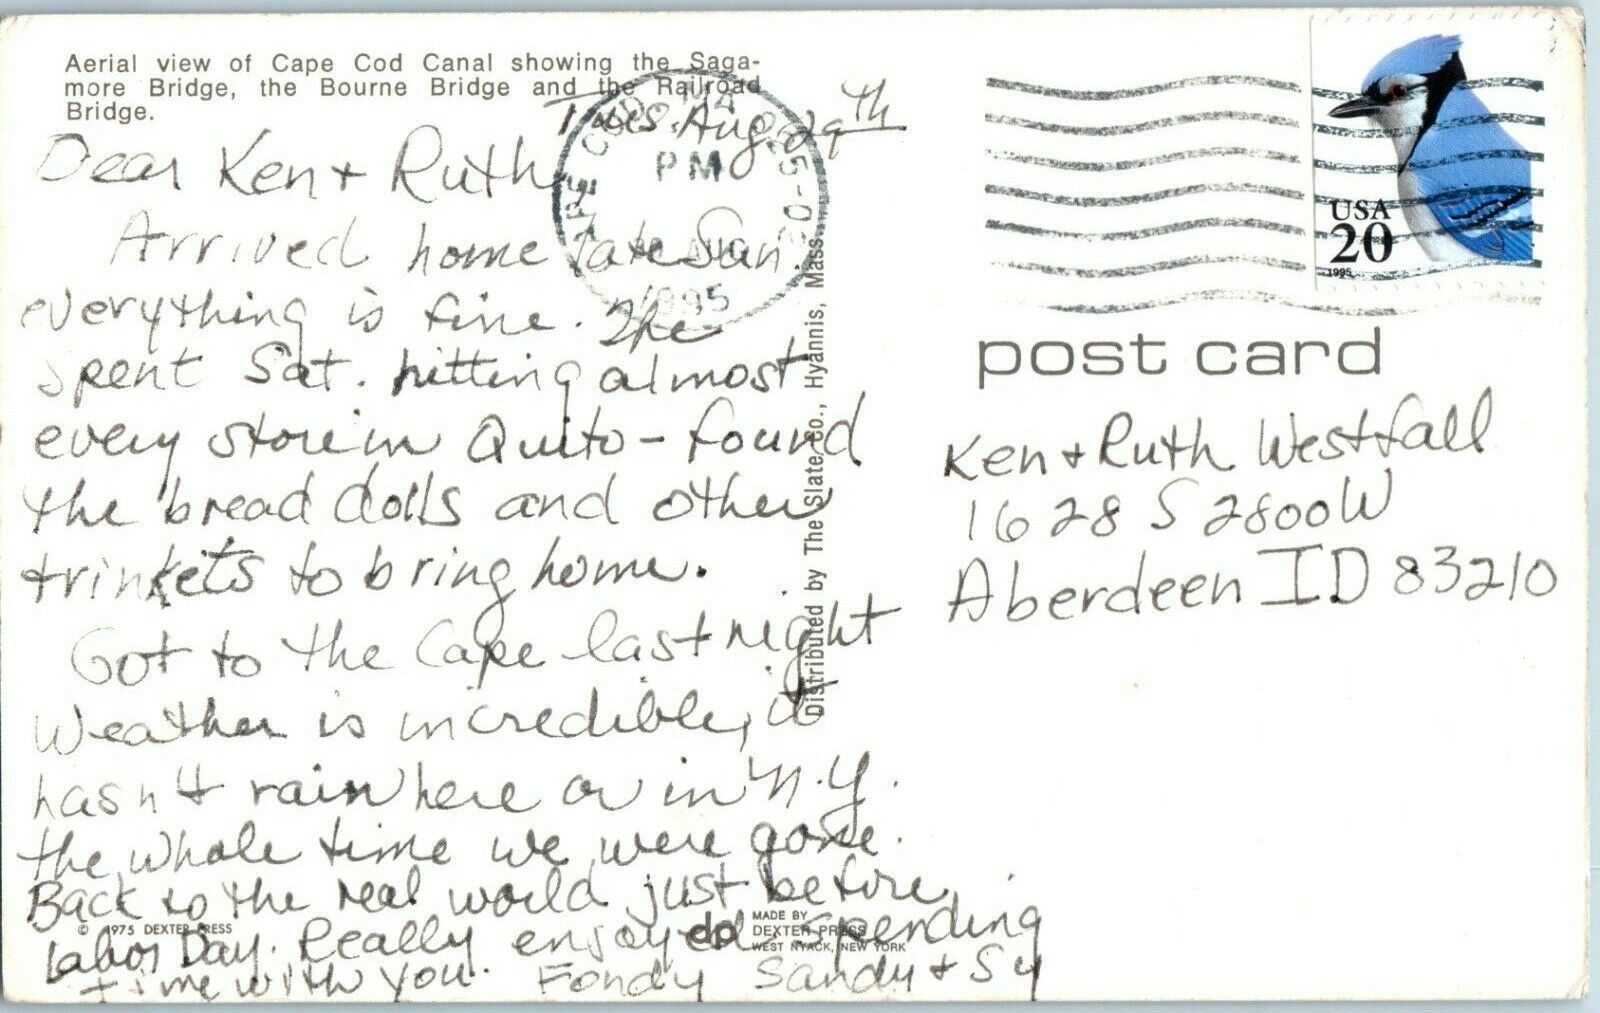 Aerial view of Cape Cod Canal showing the Saga-
more Bridge, the Bourne Bridge and the Railroad
Bridge.
Tues. Aug 29th
Dear Ken + Ruth
Arrived home late Sun
everything is fine. We
spent Sat. hitting almost
every store in Quito - found
the bread dolls and other
trinkets to bring home.
Got to the Cape last night
Weather is incredible, it
hasn't rain here or in N.Y.
the whole time we were gone.
Back to the real world just before
Labor Day. Really enjoyed spending
time with you. Fondly Sandy + Sy
© 1975 DEXTER PRESS
dp MADE BY
DEXTER PRESS
WEST NYACK, NEW YORK
Distributed by The Slate Co., Hyannis, Mass.
CAPE COD MA 025-02
PM
1995
USA
20
1995
post card
Ken + Ruth Westfall
1628 S 2800W
Aberdeen ID 83210